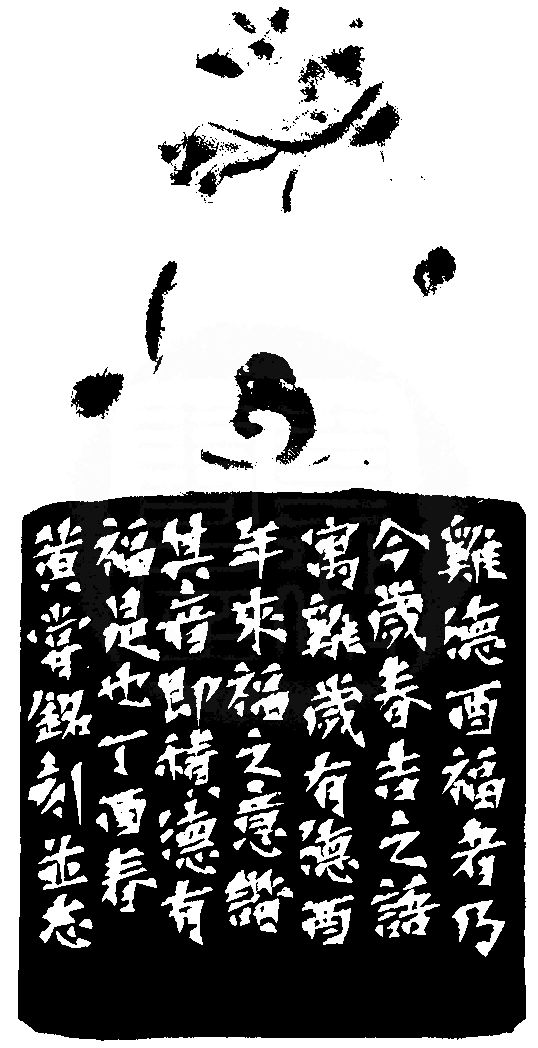 雞德酉福者乃
今歲春吉之語
寓雞歲有德酉
年來福之意諧
其音即積德有
福是也丁酉春
黃嘗銘刻並志